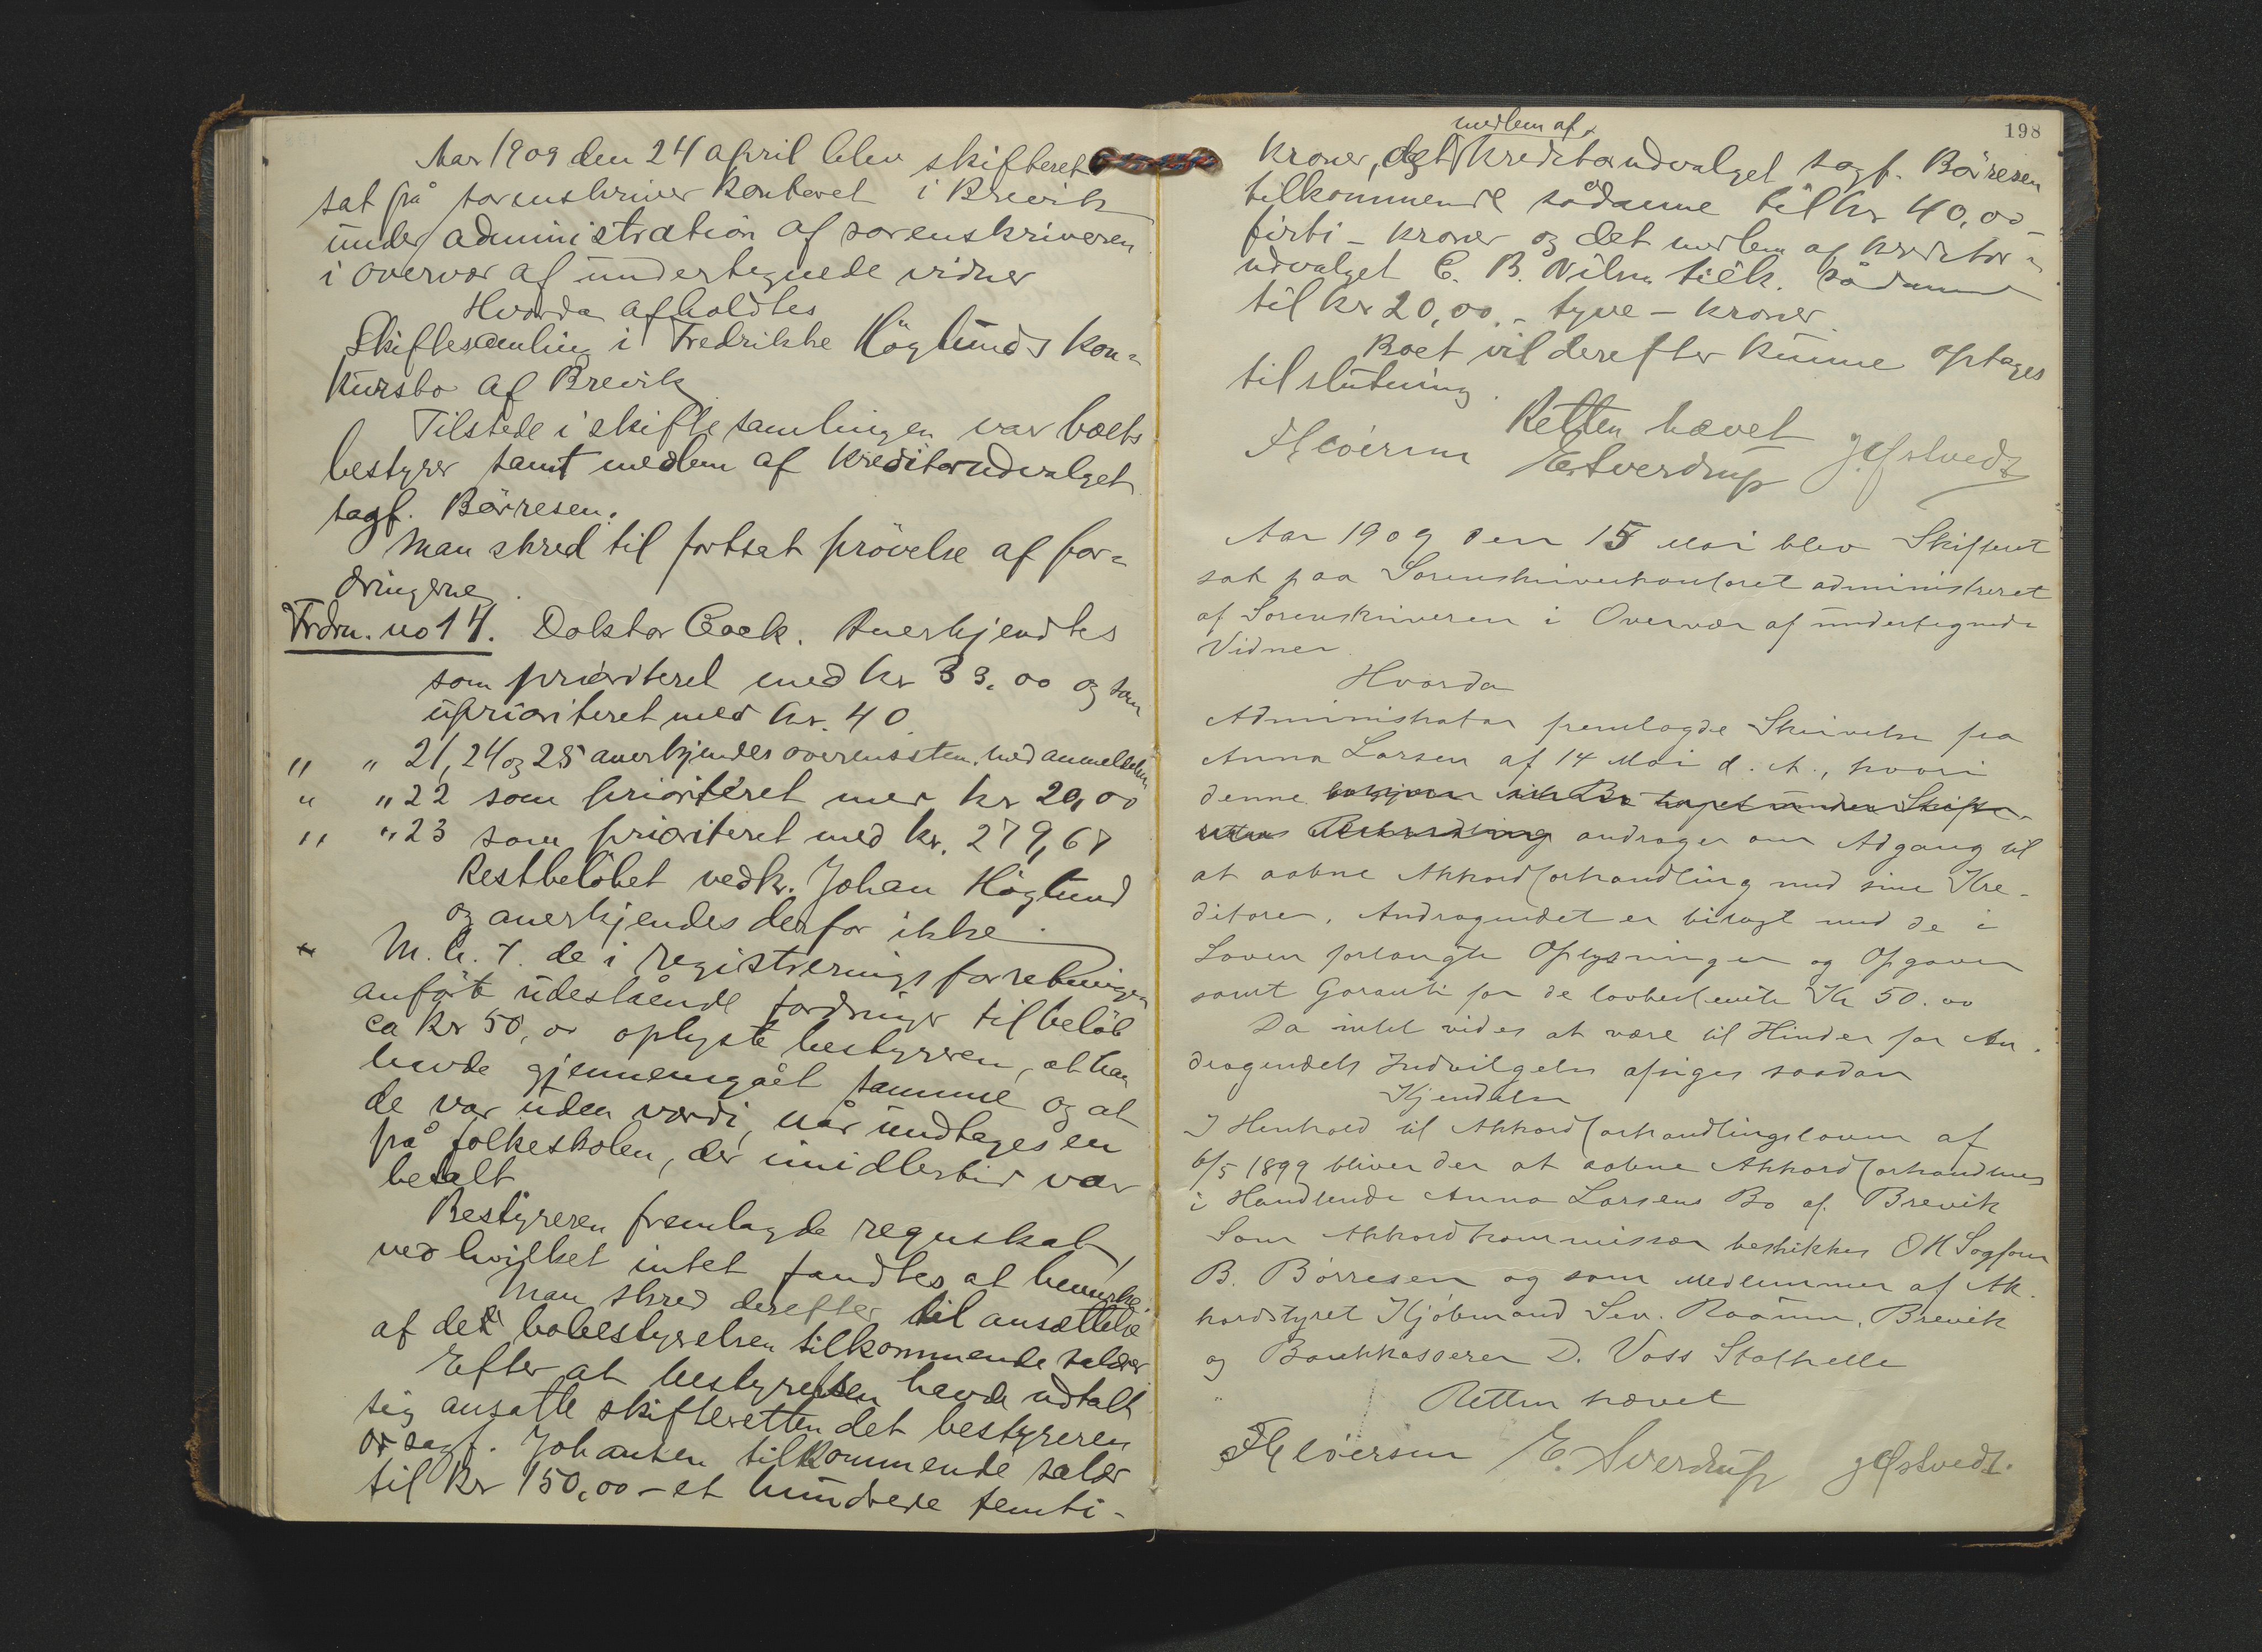 Aar 1909 den 24 april blev skifteret
sat på sorenskriver kontoret i Brevik
under administration af sorenskriveren
i overvær af undertegnede vidner
Hvorda afholdtes
Skiftesamling i Fredrikke Höglunds kon=
kursbo af Brevik
Tilstede i skiftesamlingen var boets
bestyrer samt medlem af kreditorudvalget
sagf. Börresen.
Man skred til fortsat prövelse af for=
dringerne.
Frdrn. no 14. Doktor Cock. Anerkjendtes
som prioriteret med kr 33,00 og som
uprioriteret med kr. 40
" " 21, 24 og 25 anerkjendes overensstem. med anmeldelsen
" " 22 som prioriteret med kr 20,00
" " 23 som prioriteret med kr. 279,67
Restbelöbet vedk. Johan Höglund
og anerkjendes derfor ikke.
M.h.t. de i registreringsforretningen
anförte udestående fordringer til belöb
ca kr 50,00 oplyste bestyreren, at han
havde gjennemgået samme og at
de var uden værdi, når undtages en
på folkeskolen, der imidlertid var
betalt
Bestyreren fremlagde regnskab,
ved hvilket intet fandtes at bemærke.
Man skred derefter til ansættelse
af det bobestyrelsen tilkommende salær
Efter at bestyrelsen havde udtalt
sig ansatte skifteretten det bestyreren
or sagf. Johansen tilkommende salær
til kr 150,00 – et hundrede femti –
198
medlem af
kroner, det kreditorudvalget sagf. Börresen
tilkommende sådanne til kr 40,00 –
firti – kroner og det medlem af kreditor=
udvalget C. B. Nilsen tilk. sådanne
til kr 20,00 – tyve – kroner.
Boet vil derefter kunne optages
til slutning.
Retten hævet
E. Sverdrup
Aar 1909 den 15 Mai blev Skifteret
sat paa Sorenskriverkontoret administreret
af Sorenskriveren i Overvær af undertegnede
Vidner.
Hvorda
Administrator fremlagde Skrivelse fra
Anna Larsen af 14 Mai d. A., hvori
denne begjærer sit Bo taget under Skifte-
rettens Behandling andrager om Adgang til
at aabne Akkordforhandling med sine Kre-
ditorer. Andragendet er bilagt med de i
Loven forlangte Oplysninger og Opgaver
samt Garanti for de lovbestemte Kr 50.00
Da intet vides at være til Hinder for An-
dragendets Indvilgelse afsiges saadan
Kjendelse
I Henhold til Akkordforhandlingsloven af
6/5 1899 bliver der at aabne Akkordforhandling
i Handlende Anna Larsens Bo af Brevik
Som Akkordkommissær beskikkes OR Sagfører
B. Börresen og som Medlemmer af Ak-
kordstyret Kjöbmand Sev. Raanum, Brevik
og Bankkasserer D. Voss Stathelle
Retten hævet
E. Sverdrup